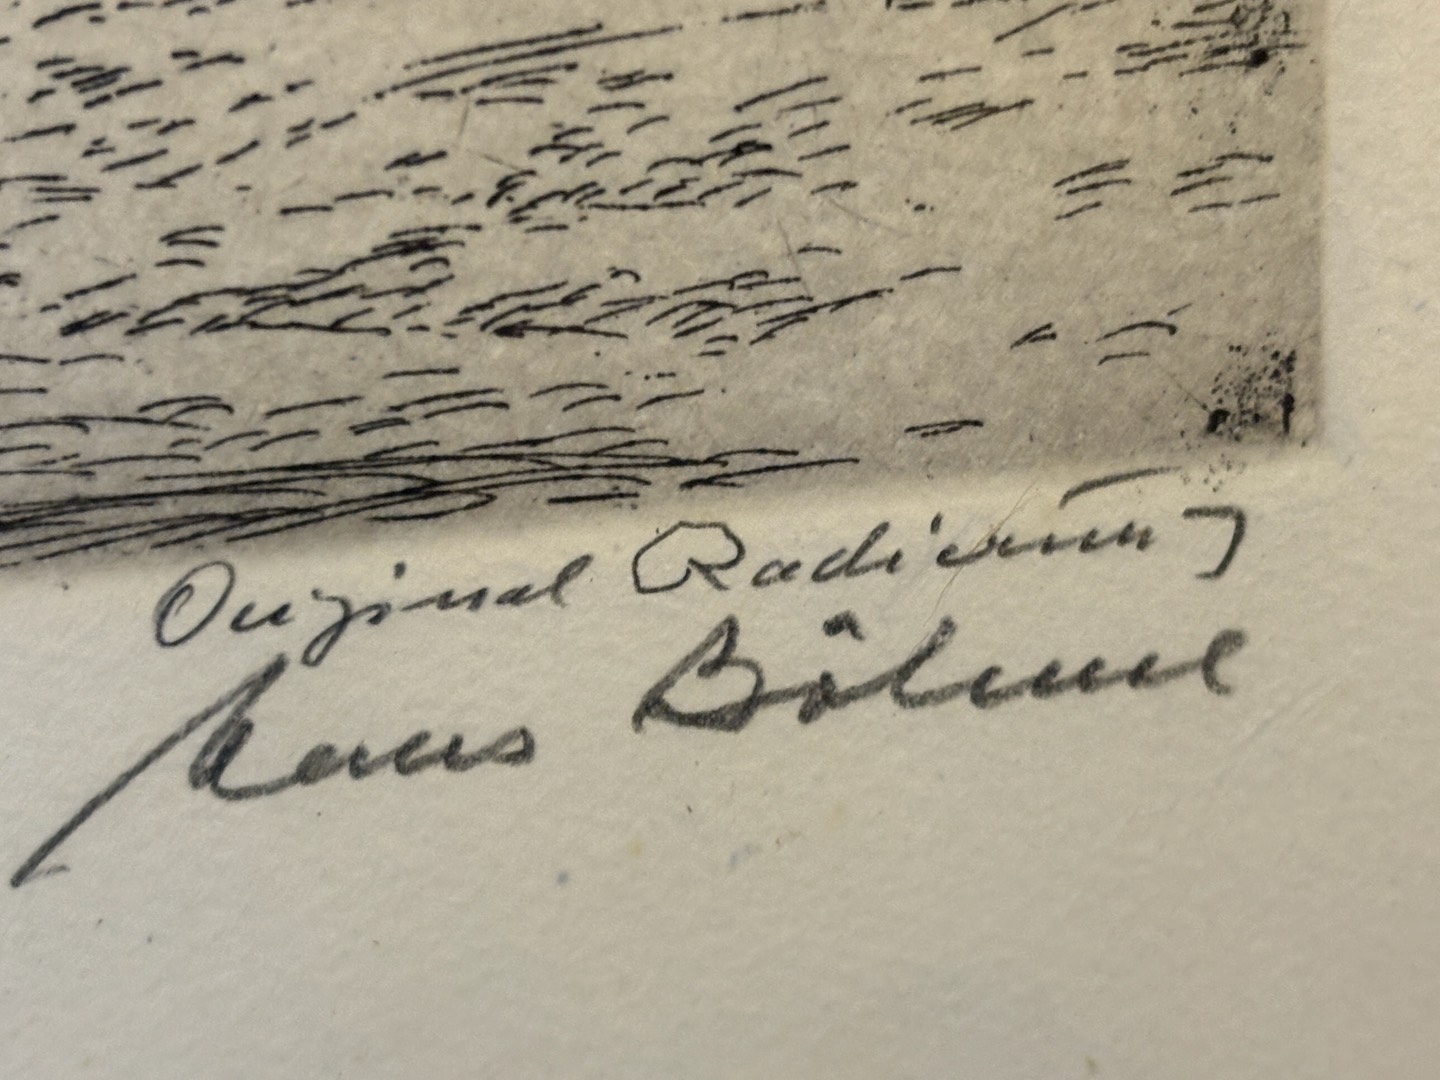 Original Radierung
Hans Böhme